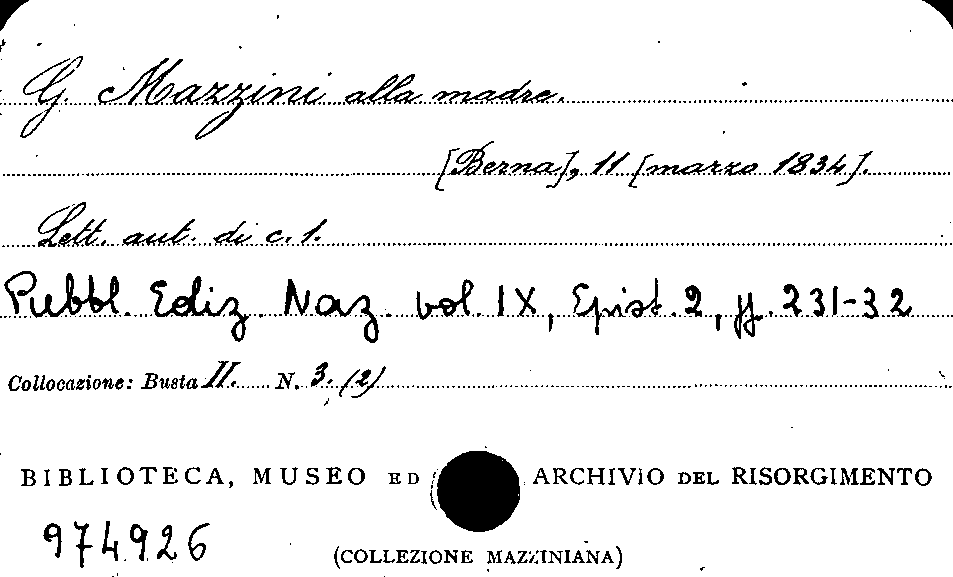 G. Mazzini alla madre.
[Berna], 11 [marzo 1834].
Lett. aut. di c. 1.
Pubbl. Ediz. Naz. vol. IX, Epist. 2, pp. 231-32
Collocazione: Busta II. N. 3. (2)
BIBLIOTECA, MUSEO ED ARCHIVIO DEL RISORGIMENTO
974926
(COLLEZIONE MAZZINIANA)